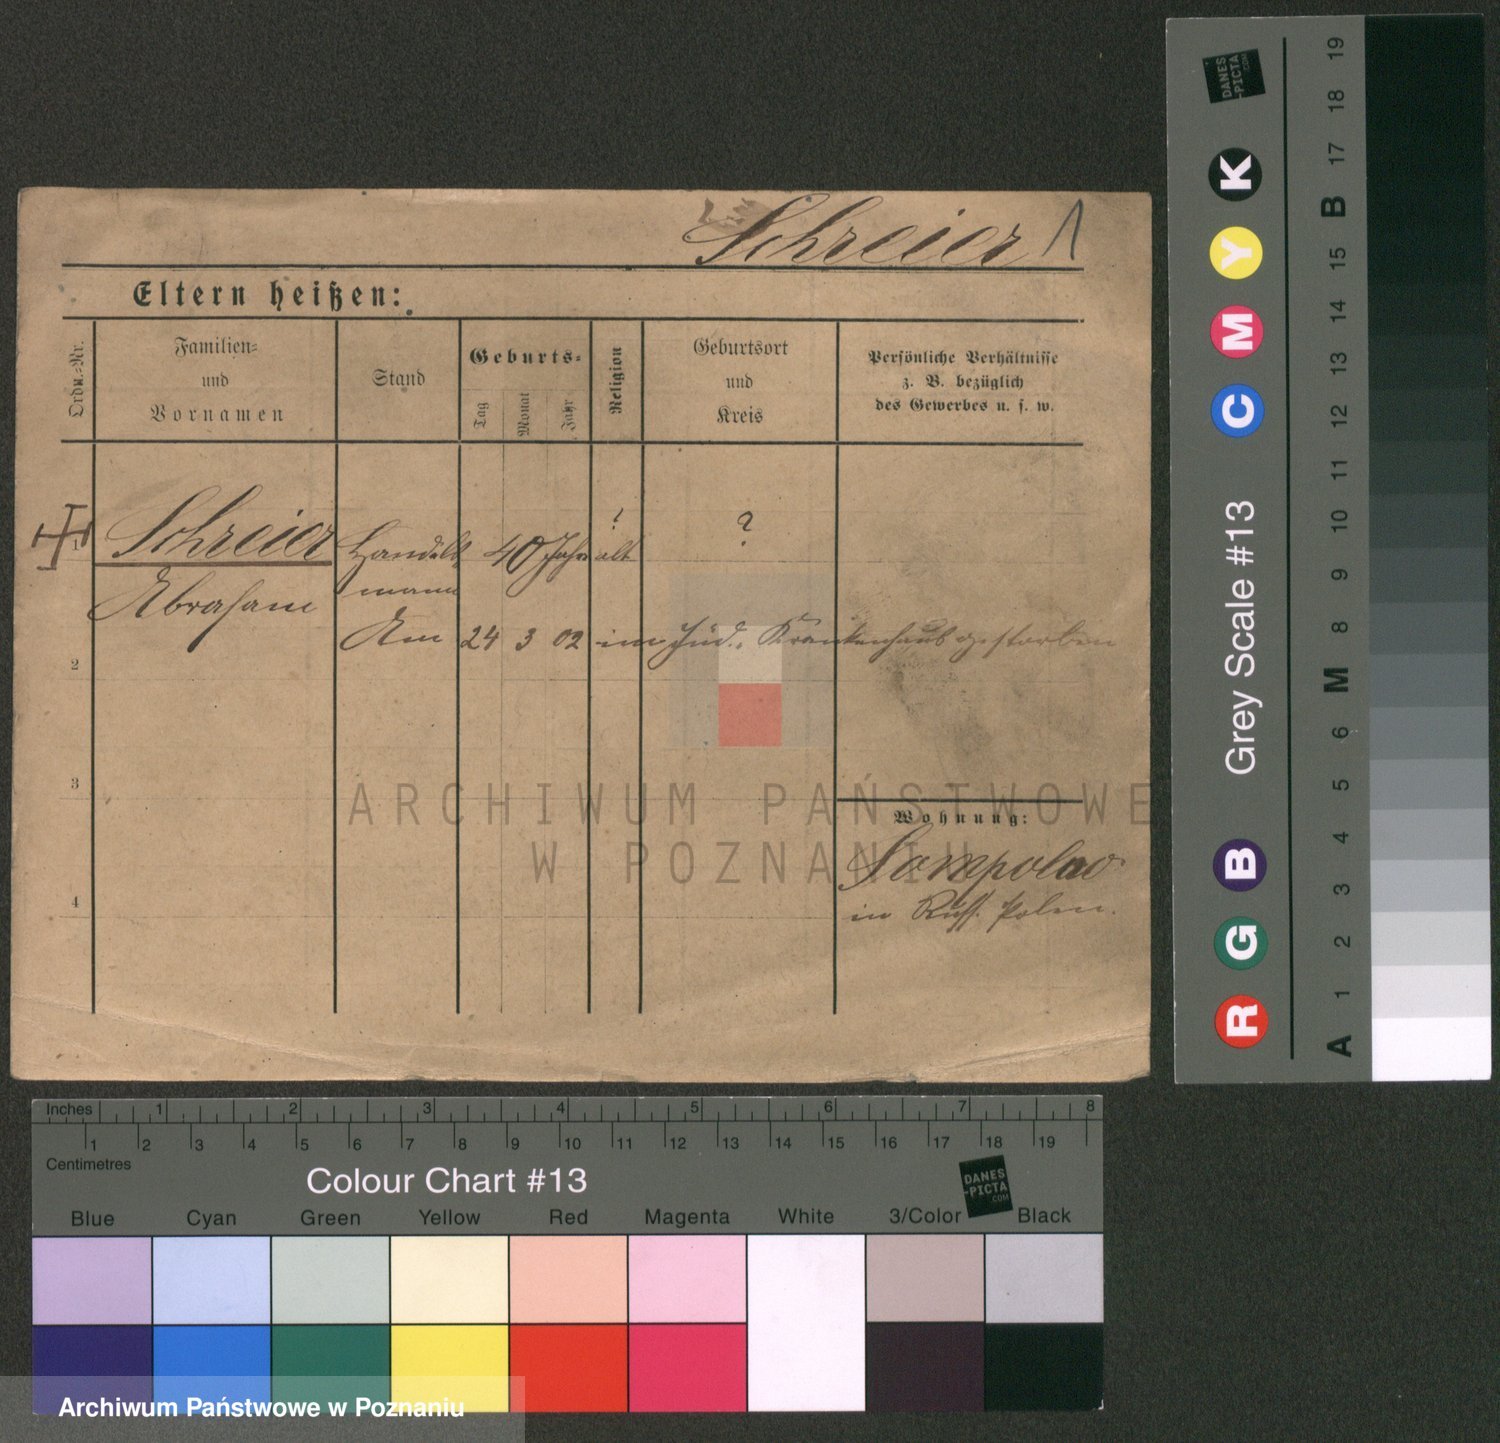 Schreier 1
Eltern heißen:
Ordn.-Nr.
Familien-
und
Vornamen
Stand
Geburts-
Tag
Monat
Jahr
Religion
Geburtsort
und
Kreis
Persönliche Verhältnisse
z. B. bezüglich
des Gewerbes u. s. w.
1 Schreier Handels 40 Jahre alt ? ?
Abraham mann
Am 24 3 02 im Jüd. Krankenhaus gestorben
2
3
4
Wohnung:
Sompolno
in Russ. Polen.
ARCHIWUM PAŃSTWOWE
W POZNANIU
Inches 1 2 3 4 5 6 7 8
1 2 3 4 5 6 7 8 9 10 11 12 13 14 15 16 17 18 19
Centimetres
Colour Chart #13
DANES
-PICTA
.COM
Blue Cyan Green Yellow Red Magenta White 3/Color Black
Archiwum Państwowe w Poznaniu
DANES
-PICTA
.COM
R G B Grey Scale #13 C M Y K
A 1 2 3 4 5 6 M 8 9 10 11 12 13 14 15 B 17 18 19